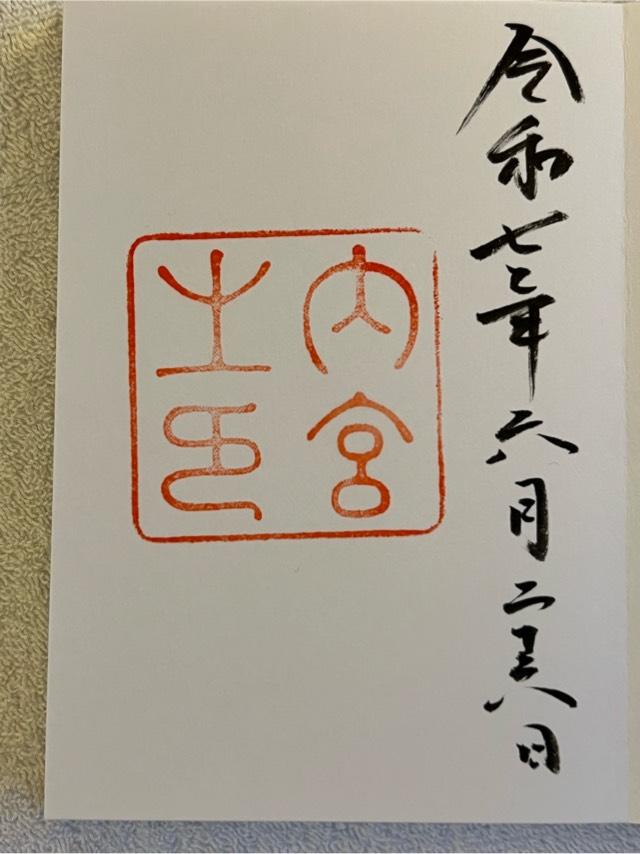 令和七年六月二十六日
内宮
之印